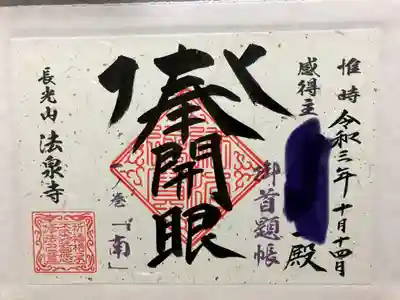 惟時 令和三年 十月十四日
感得主 殿
御首題帳
奉開眼
一ノ巻「南」
長光山 法泉寺